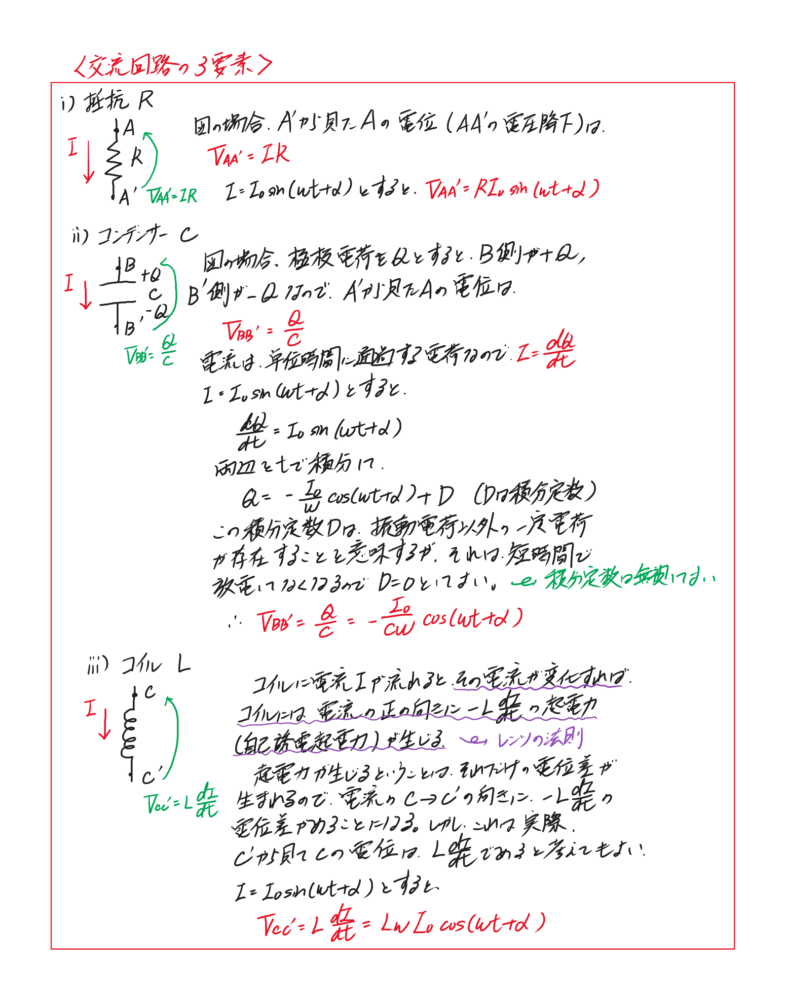 〈交流回路の3要素〉
i) 抵抗 R
A
I
R
A'
V_AA'=IR
図の場合、A'から見たAの電位(AA'の電圧降下)は、
V_AA'=IR
I=I₀sin(ωt+α)とすると、V_AA'=RI₀sin(ωt+α)
ii) コンデンサー C
B
+Q
I
C
-Q
B'
V_BB'=Q/C
図の場合、極板電荷をQとすると、B側が+Q,
B'側が-Qなので、A'から見たAの電位は、
V_BB'=Q/C
電流は、単位時間に通過する電荷なので、I=dQ/dt
I=I₀sin(ωt+α)とすると、
dQ/dt=I₀sin(ωt+α)
両辺をtで積分して、
Q=-I₀/ω cos(ωt+α)+D (Dは積分定数)
この積分定数Dは、振動電荷以外の一定電荷
が存在することを意味するが、それは、短時間で
放電してなくなるので D=0としてよい。 ← 積分定数は無視してよい
∴ V_BB'=Q/C=-I₀/Cω cos(ωt+α)
iii) コイル L
C
I
C'
V_CC'=L dI/dt
コイルに電流Iが流れると、その電流が変化すれば、
コイルには、電流の正の向きに -L dI/dt の起電力
(自己誘電起電力)が生じる。 ← レンツの法則
起電力が生じるということは、それだけの電位差が
生まれるので、電流のC→C'の向きに、-L dI/dt の
電位差があることになる。しかし、これは、実際、
C'から見てCの電位は、L dI/dt であると考えてもよい。
I=I₀sin(ωt+α)とすると、
V_CC'=L dI/dt=LωI₀cos(ωt+α)